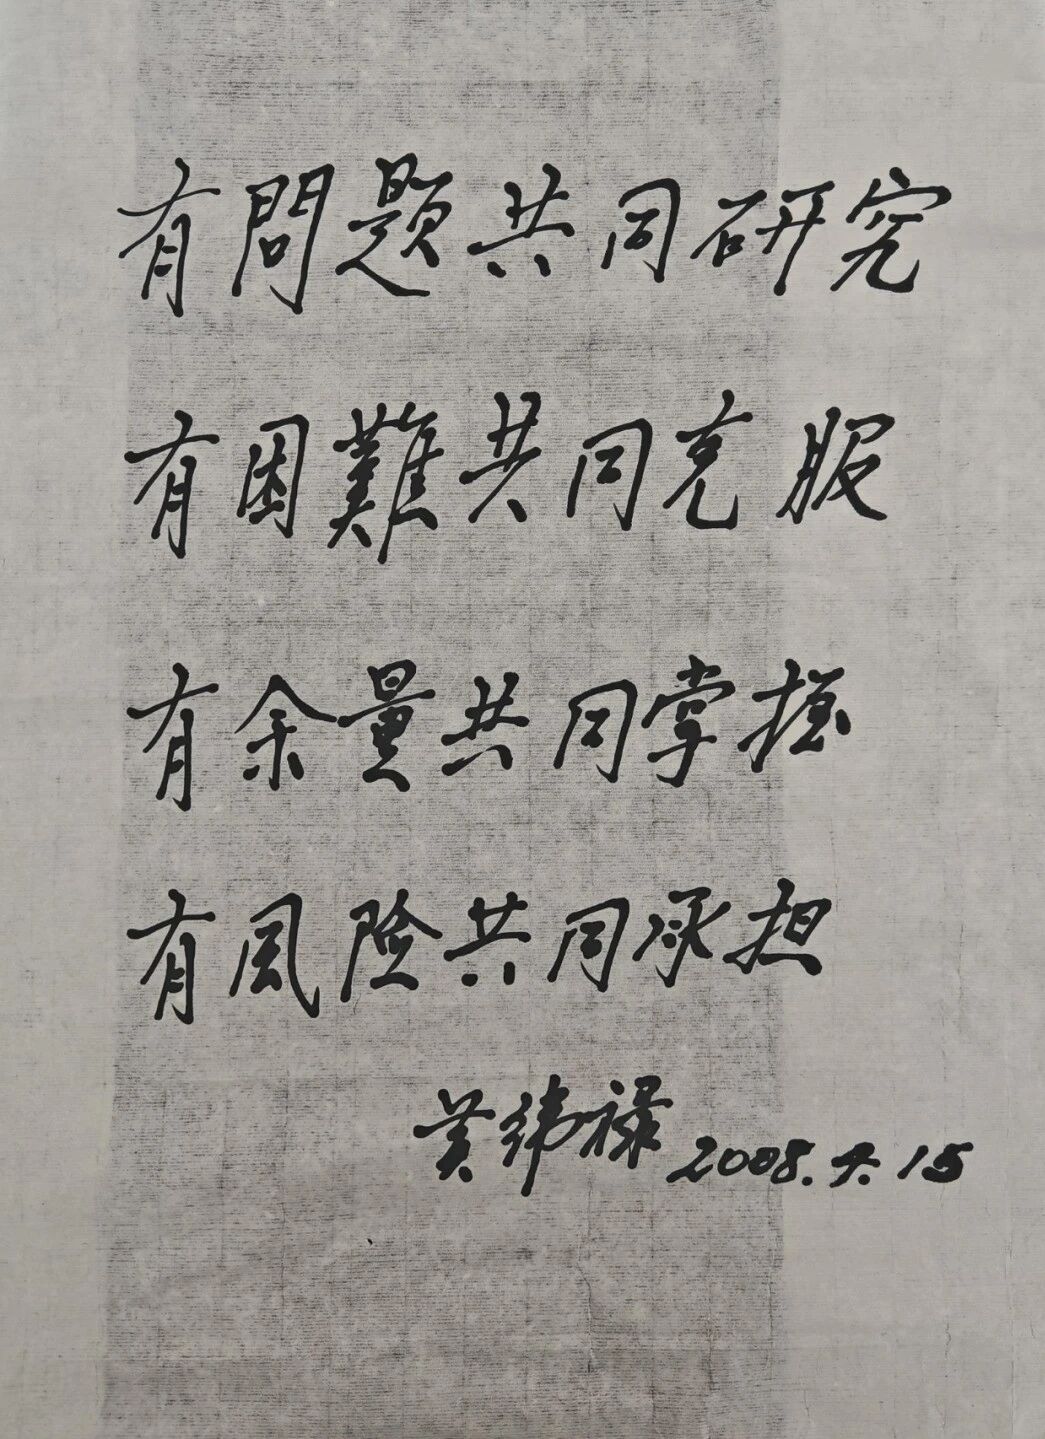 有問題共同研究
有困難共同克服
有余量共同掌握
有風险共同承担
黄纬禄 2008.4.15